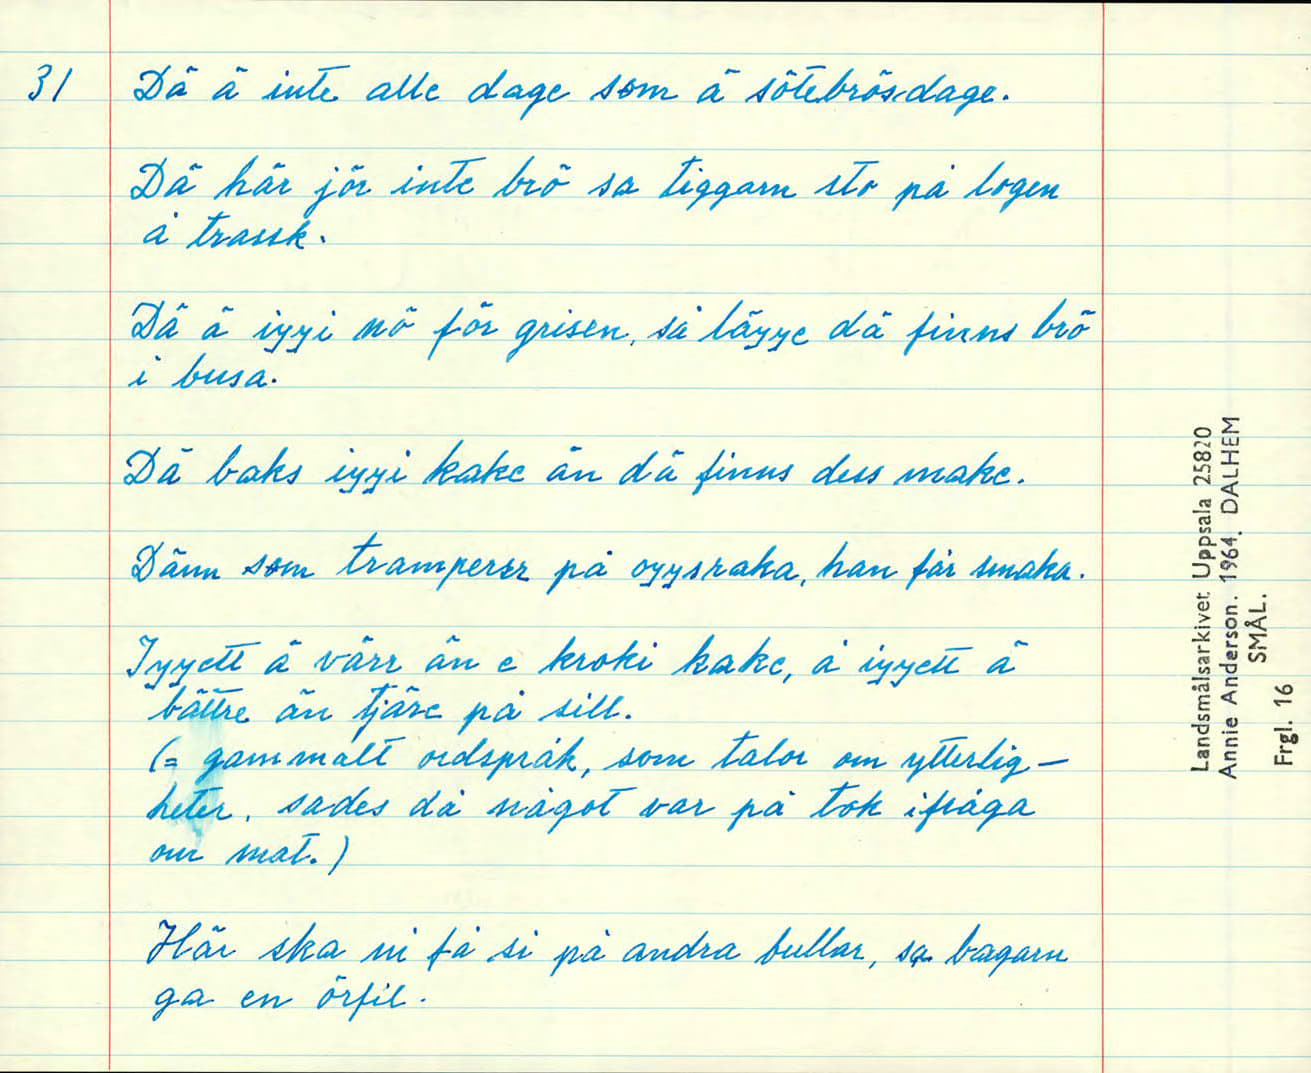 31 Dä ä inte alle dage som ä sötebrösdage.
Dä här jör inte brö sa tiggarn sto på logen
å trassk.
Dä ä iyyi nö för grisen, så läyye dä finns brö
i busa.
Dä baks iyyi kake än dä finns dess make.
Dänn som tramperer på oyysraka, han får smaka.
Iyyett ä värr än e kroki kake, å iyyett ä
bättre än tjäre på sill.
(= gammalt ordspråk, som talor om ytterlig-
heter, sades då något var på tok ifråga
om mat.)
Här ska ni få si på andra bullar, sa bagarn
ga en örfil.
Landsmålsarkivet Uppsala 25820
Annie Anderson. 1964. DALHEM
SMÅL.
Frgl. 16